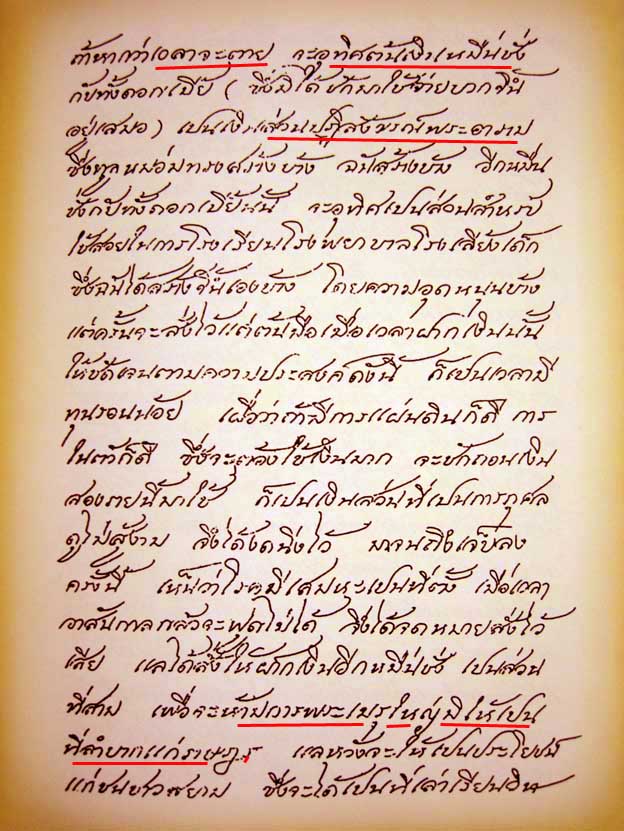 ถ้าหากว่าเวลาจะตาย จะอุทิศต้นเงินหมื่นชั่ง
กับทั้งดอกเบี้ย (ซึ่งมิได้ชักมาใช้จ่ายบากบั่น
อยู่เสมอ) เปนเงินส่วนปฏิสังขรณ์พระอาราม
ซึ่งทูลหม่อมทรงสร้างบ้าง ฉันสร้างบ้าง อีกหมื่น
ชั่งกับทั้งดอกเบี้ยนั้น จะอุทิศเปนส่วนสำหรับ
ใช้สอยในการโรงเรียนโรงพยาบาลโรงเลี้ยงเด็ก
ซึ่งฉันได้สร้างขึ้นเองบ้าง โดยความอุดหนุนบ้าง
แต่ครั้นจะสั่งไว้แต่ต้นมือเมื่อเวลาฝากเงินนั้น
ให้ชัดเจนตามความประสงค์ดังนี้ ก็เปนเวลามี
ทุนรอนน้อย เผื่อว่าถ้ามีการแผ่นดินก็ดี การ
ในตัวก็ดี ซึ่งจะต้องใช้เงินมาก จะชักถอนเงิน
สองรายนี้มาใช้ ก็เปนเงินส่วนที่เปนการกุศล
ดูไม่สู้งาม จึงได้งดนิ่งไว้ มาจนถึงเจ็บลง
ครั้งนี้ เห็นว่าโรคมีเสมหะเปนที่ตั้ง เมื่อเวลา
อาสันกาลกลัวจะพูดไม่ได้ จึงได้จดหมายสั่งไว้
เสีย แลได้สั่งให้ฝากเงินอีกหมื่นชั่ง เปนส่วน
ที่สาม เพื่อจะห้ามการพระเมรุใหญ่มิให้เปน
ที่ลำบากแก่ราษฎร แลหวังจะให้เปนประโยชน์
แก่ชนชาวสยาม ซึ่งจะได้เปนที่เล่าเรียนวิช